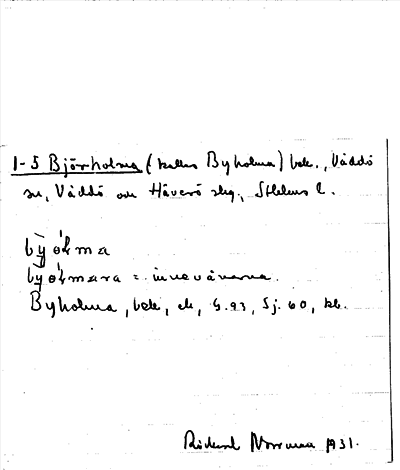 1-5 Björholma (kallas Byholma) bek., Väddö
sn, Väddö och Häverö skg., Sthlms l.
bỳól̀ma
bỳól̀mara = innevånarna.
Byholma, bek, ek, G.93, Sj. 60, kb.
Norrman 1931.